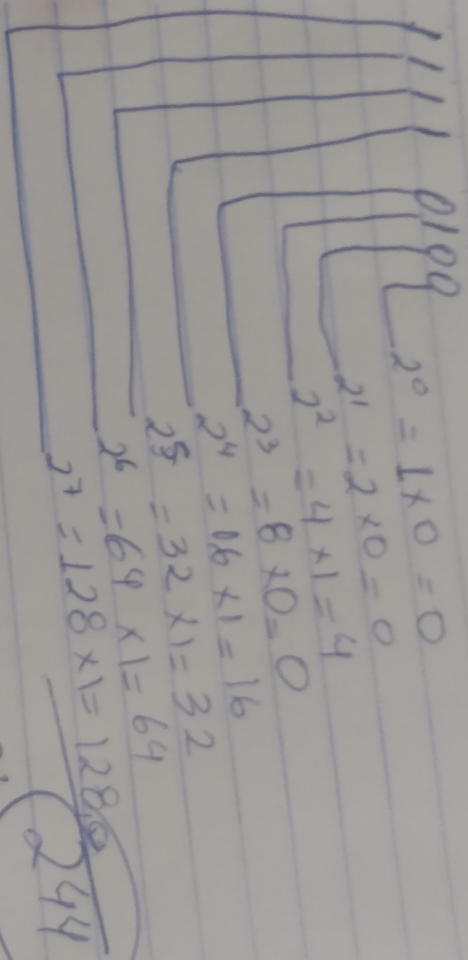 11110100
2⁰ = 1×0 = 0
2¹ = 2×0 = 0
2² = 4×1 = 4
2³ = 8×0 = 0
2⁴ = 16×1 = 16
2⁵ = 32×1 = 32
2⁶ = 64×1 = 64
2⁷ = 128×1 = 128
244